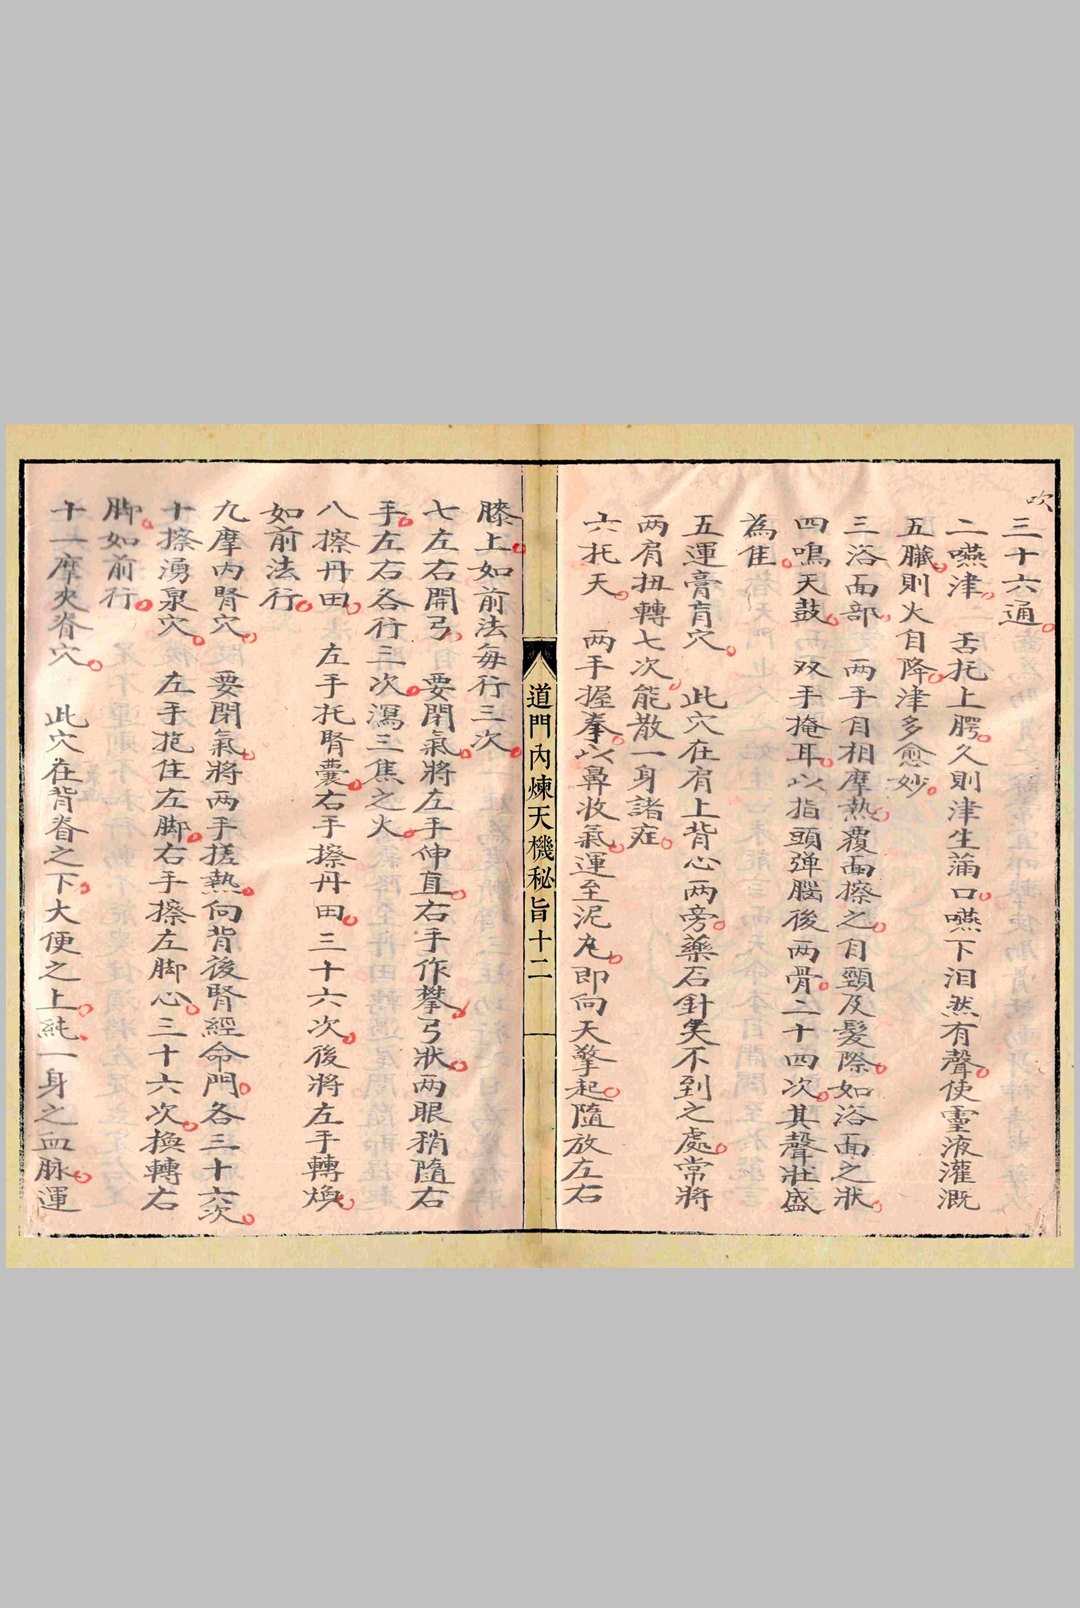 次
三十六通。
二嚥津。 舌托上腭。久則津生滿口。嚥下汨然有聲。使靈液灌溉
五臟。則火自降。津多愈妙。
三浴面部。 兩手自相摩熱。覆面擦之。自頸及髮際。如浴面之狀。
四鳴天鼓。 双手掩耳。以指頭弹腦後兩骨。二十四次。其聲壯盛
為佳。
五運膏肓穴。 此穴在肩上背心兩旁。藥石針灸不到之處。常將
兩肩扭轉七次。能散一身諸症。
六托天。 兩手握拳。以鼻收氣。運至泥丸。即向天擎起。隨放左右
道門內煉天機秘旨十二
膝上。如前法每行三次。
七左右開弓。 要閉氣。將左手伸直。右手作攀弓狀。兩眼稍隨右
手。左右各行三次。瀉三焦之火。
八擦丹田。 左手托腎囊。右手擦丹田。三十六次。後將左手轉煥。
如前法行。
九摩內腎穴。 要閉氣。將兩手搓熱。向背後腎經命門。各三十六次。
十擦湧泉穴。 左手扼住左脚。右手擦左脚心。三十六次。換轉右
脚。如前行。
十一摩夾脊穴。 此穴在背脊之下。大便之上。統一身之血脉。運